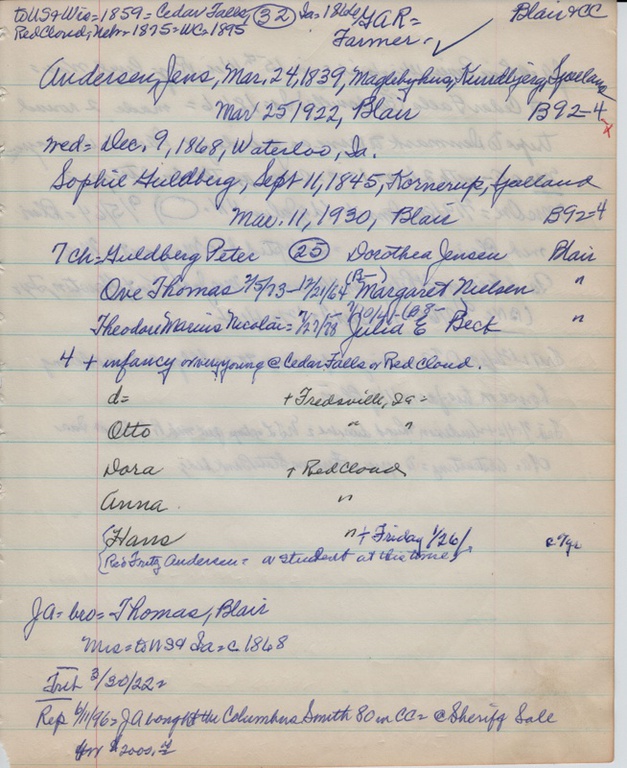 to US & Wis = 1859 = Cedar Falls, (32) Ia = 1860s GAR = Blair & CC
Red Cloud, Nebr = 1875 = WC = 1895 Farmer - ✓
Andersen, Jens, Mar. 24, 1839, Maglebyhus, Kundbjerg, Sjælland
Mar 25 1922, Blair B92-4 x
wed = Dec. 9, 1868, Waterloo, Ia.
Sophie Guldberg, Sept 11, 1845, Kornerup, Sjælland
Mar. 11, 1930, Blair B92-4
7 ch = Guldberg Peter (25) Dorothea Jensen Blair
Ove Thomas 2/5/73 - 12/21/64 (B-) Margaret Nielsen "
Theodore Marius Nicolai = 7/27/78 - Julia E Beck "
4 + infancy or very young @ Cedar Falls or Red Cloud.
d = + Fredsville, Ia =
Otto " "
Dora + Red Cloud
Anna "
{Hans " + Friday 1/26/ c 7 yr
{Rev Fritz Andersen = a student at this time)
JA = bro = Thomas, Blair
Mrs = to US & Ia = c 1868
Trib 3/30/22 =
Rep 6/11/96 = JA bought the Columbus Smith 80 in CC = @ Sheriff Sale
for $2000.